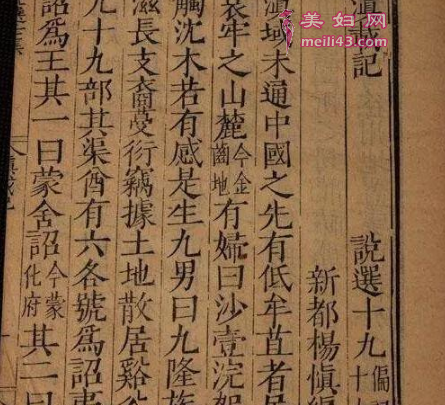 美妇网
meili43.com
滇載記 說選十九偏記
新都楊慎編
滇域未通中國之先有低牟苴者居
哀牢之山麓今金齒地有婦曰沙壹浣絮
觸沈木若有感是生九男曰九隆族
滋長支裔蔓衍竊據土地散居谿谷
九十九部其渠酋有六各號爲詔夷
詔爲王其一曰蒙舍詔今蒙化府其二曰